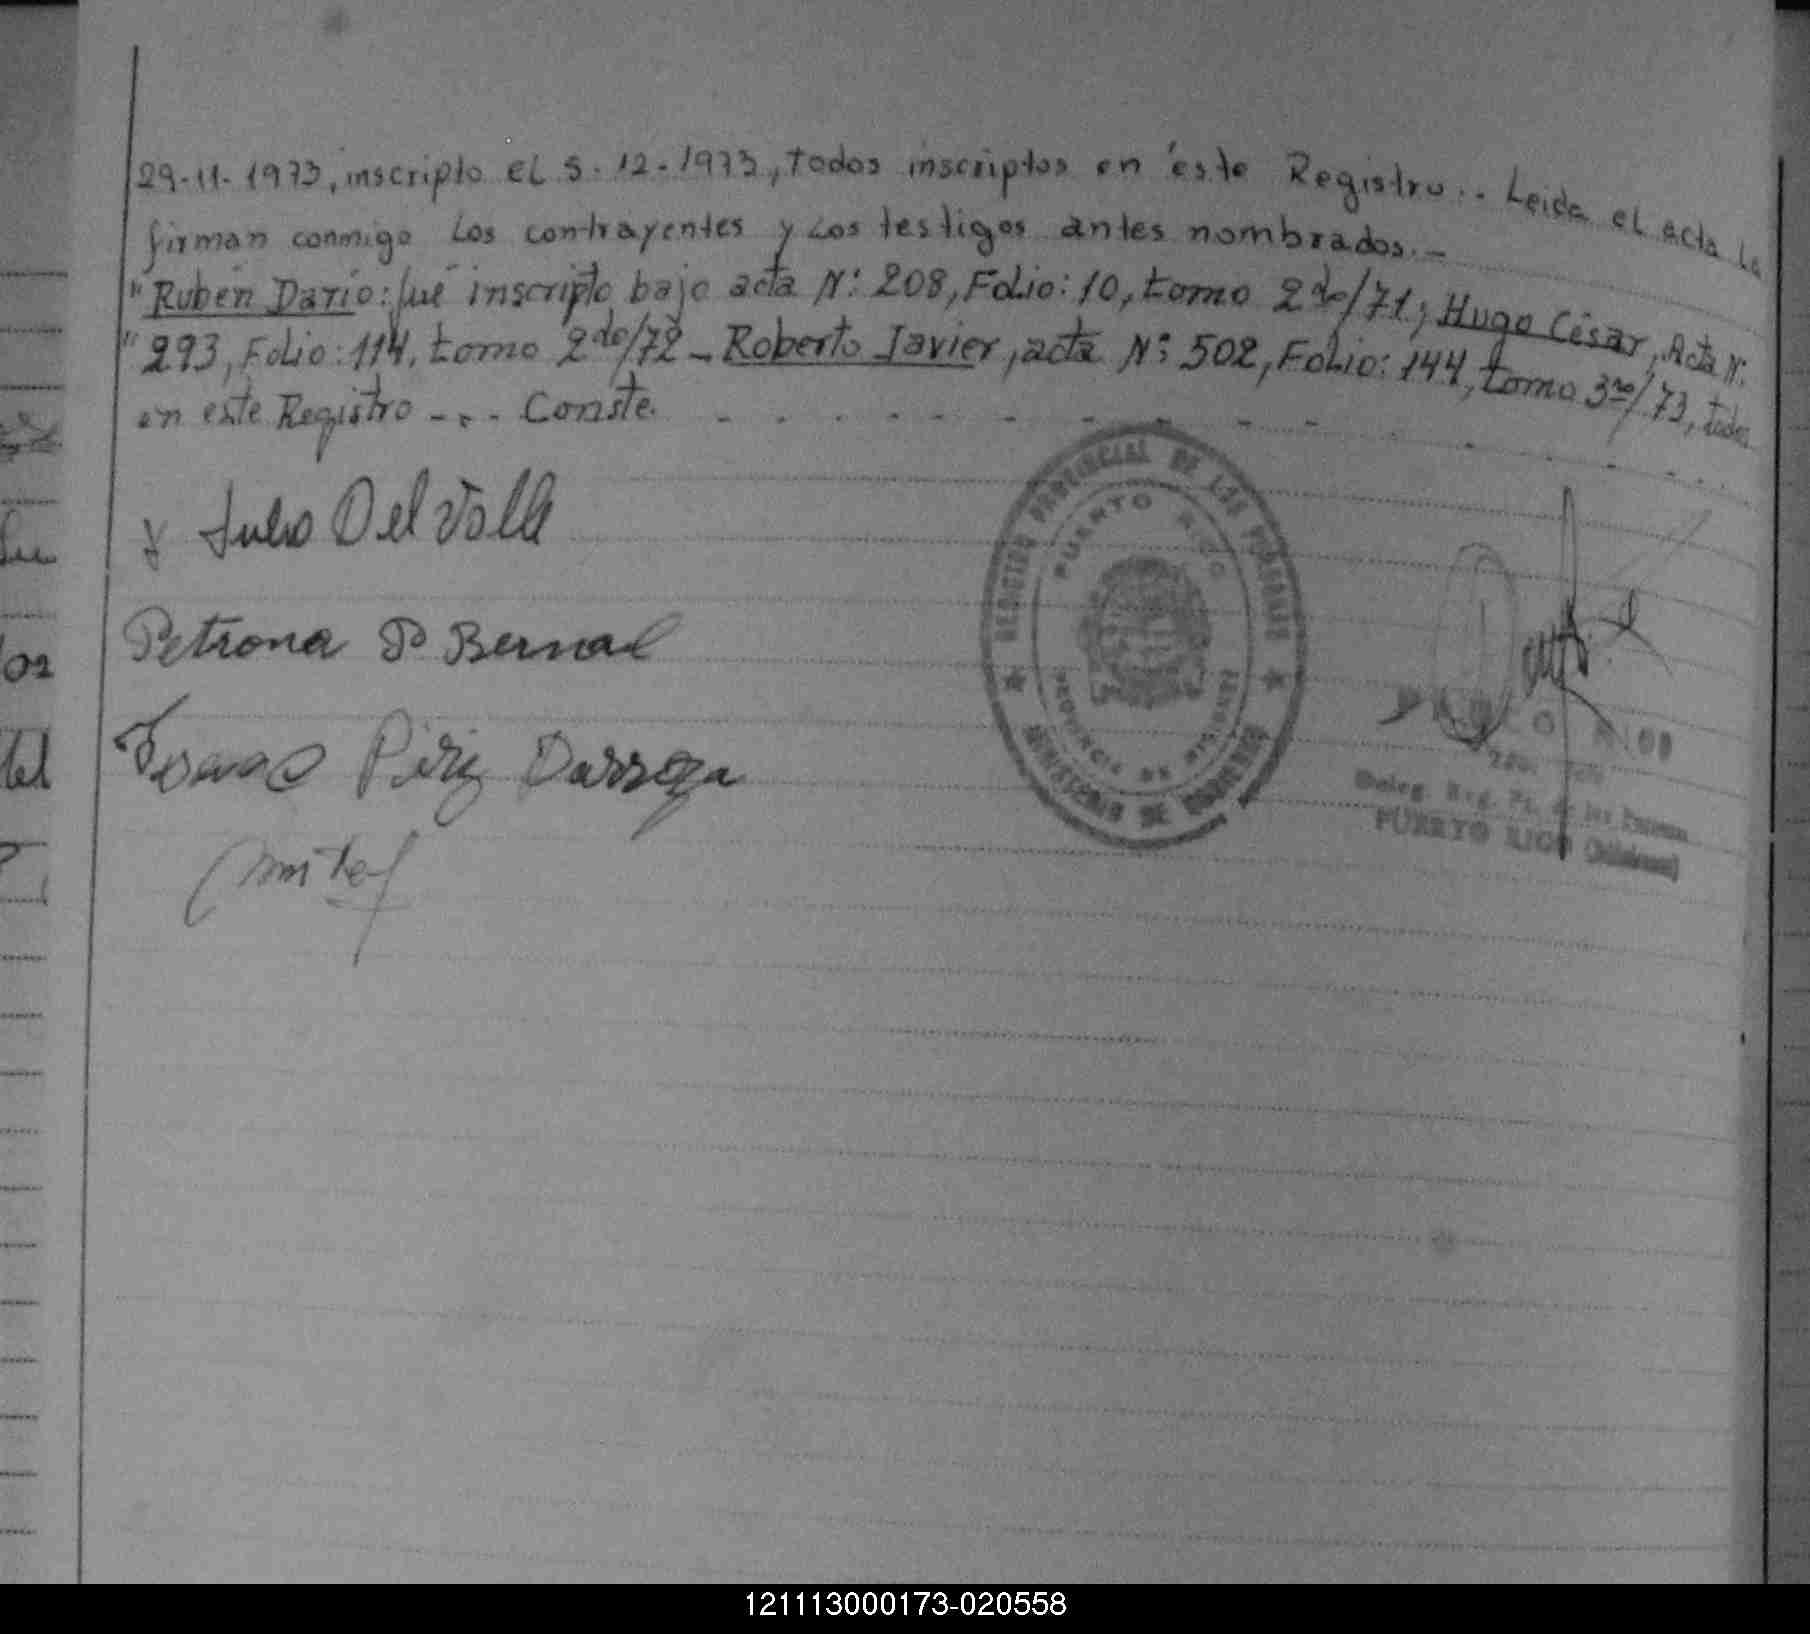 29-11-1973, inscripto el 5-12-1973, todos inscriptos en éste Registro.. Leida el acta la
firman conmigo los contrayentes y los testigos antes nombrados.-
"Rubén Darío: fué inscripto bajo acta N: 208, Folio: 10, tomo 2do/71; Hugo César, Acta N:
"293, Folio: 114, tomo 2do/72 - Roberto Javier, acta N: 502, Folio: 144, tomo 3ro/73, todos
en este Registro -.- Conste.
Julio Del Valle
Petrona P Bernal
REGISTRO PROVINCIAL DE LAS PERSONAS
PUERTO RICO
PROVINCIA DE MISIONES
MINISTERIO DE GOBIERNO
Deleg. Reg. P. de las Personas
PUERTO RICO (Misiones)
121113000173-020558